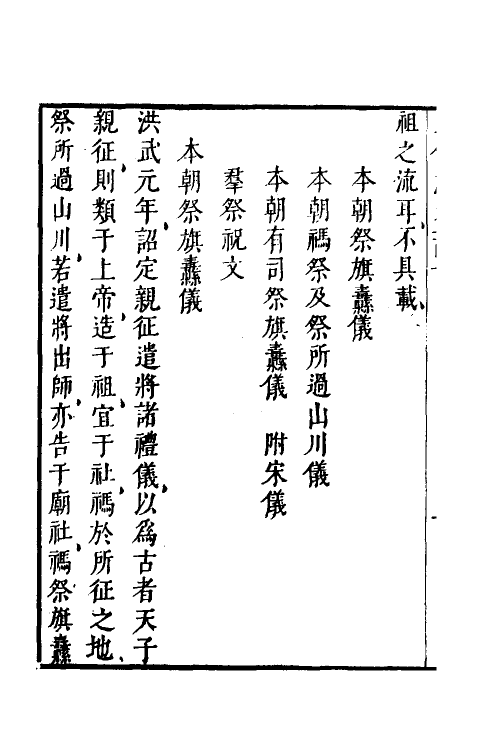 祖之流耳不具載
本朝祭旗纛儀
本朝禡祭及祭所過山川儀
本朝有司祭旗纛儀　附宋儀
羣祭祝文
本朝祭旗纛儀
洪武元年詔定親征遣將諸禮儀以爲古者天子
親征則類于上帝造于祖宜于社禡於所征之地
祭所過山川若遣將出師亦告于廟社禡祭旗纛